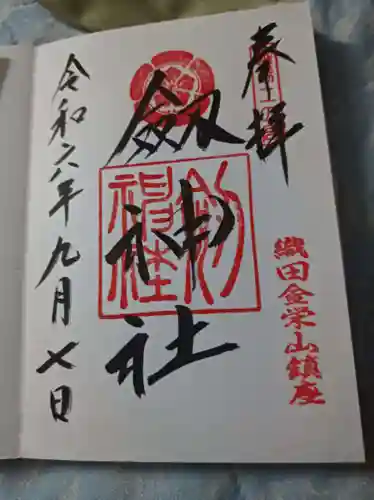 奉拝
織田金栄山鎮座
劔神社
令和六年九月七日